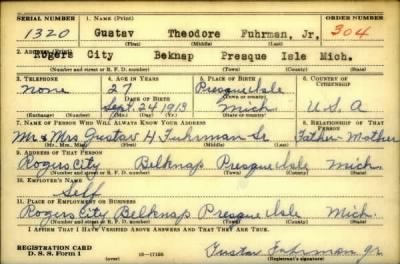 SERIAL NUMBER 1. NAME (Print) ORDER NUMBER
1320 Gustav Theodore Fuhrman, Jr. 304
(First) (Middle) (Last)
2. ADDRESS (Print)
Rogers City Beknap Presque Isle Mich.
(Number and street or R. F. D. number) (Town) (County) (State)
3. TELEPHONE 4. AGE IN YEARS 5. PLACE OF BIRTH 6. COUNTRY OF CITIZENSHIP
none 27 Presque Isle
DATE OF BIRTH (Town or county)
Sept. 24 1913 Mich. U.S.A
(Exchange) (Number) (Mo.) (Day) (Yr.) (State or country)
7. NAME OF PERSON WHO WILL ALWAYS KNOW YOUR ADDRESS 8. RELATIONSHIP OF THAT PERSON
Mr & Mrs Gustav H. Fuhrman Sr Father Mother
(Mr., Mrs., Miss) (First) (Middle) (Last)
9. ADDRESS OF THAT PERSON
Rogers City Belknap Presque Isle Mich.
(Number and street or R. F. D. number) (Town) (County) (State)
10. EMPLOYER'S NAME
Self
11. PLACE OF EMPLOYMENT OR BUSINESS
Rogers City Belknap Presque Isle Mich.
(Number and street or R. F. D. number) (Town) (County) (State)
I AFFIRM THAT I HAVE VERIFIED ABOVE ANSWERS AND THAT THEY ARE TRUE.
REGISTRATION CARD
D. S. S. Form 1 Gustav Fuhrman Jr.
(Registrant's signature)